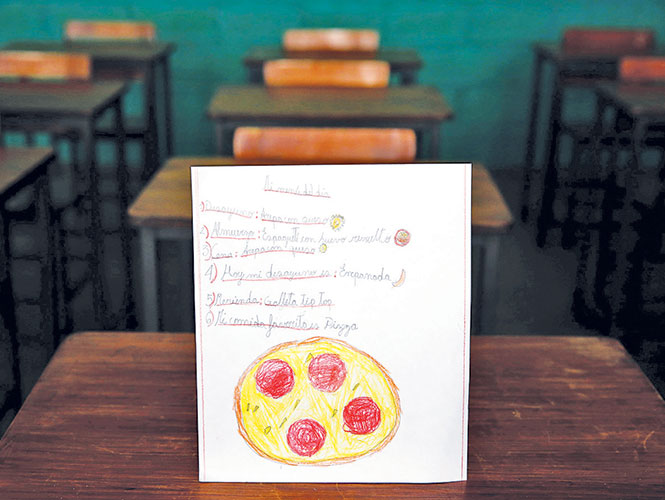 Mi menú del día
1) Desayuno: Arepa con queso
2) Almuerzo: Espagueti con huevo revuelto
3) Cena: Arepa con queso
4) Hoy mi desayuno es: Empanada
5) Merienda: Galleta tip Top
6) Mi comida favorita es Pizza